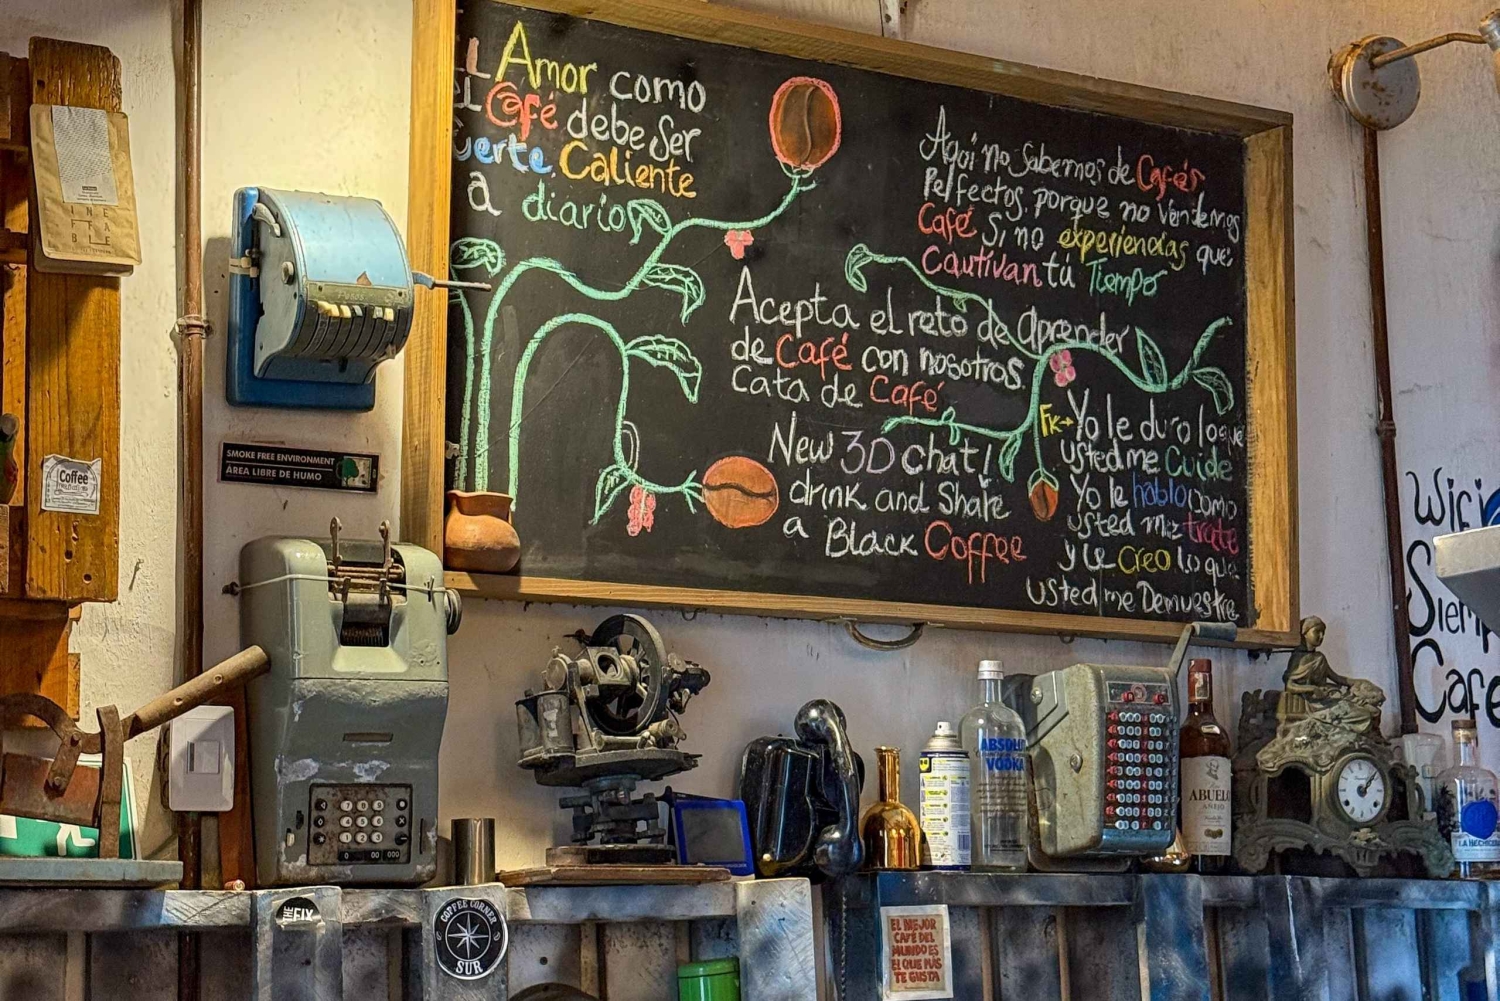 L Amor como
EL Café debe Ser
uerte Caliente
a diario
Aqui no Sabemos de Cafés
Perfectos, porque no Vendemos
Café Si no experiencias que
Cautivan tú Tiempo
Acepta el reto de aprender
de Café con nosotros
Cata de Café
New 3D chat!
drink and Share
a Black Coffee
FK→ Yo le duro lo que
usted me Cuide
Yo le hablo como
usted me trate
y le Creo lo que
usted me Demuestre
INE
FA
BLE
Coffee
SMOKE FREE ENVIRONMENT
ÁREA LIBRE DE HUMO
Wifi
Siemp
Café
ABSOLUT
VODKA
ABUELO
AÑEJO
LA HECHICERA
0 00 000
THE FIX
COFFEE CORNER
SUR
EL MEJOR
CAFÉ DEL
MUNDO ES
EL QUE MÁS
TE GUSTA